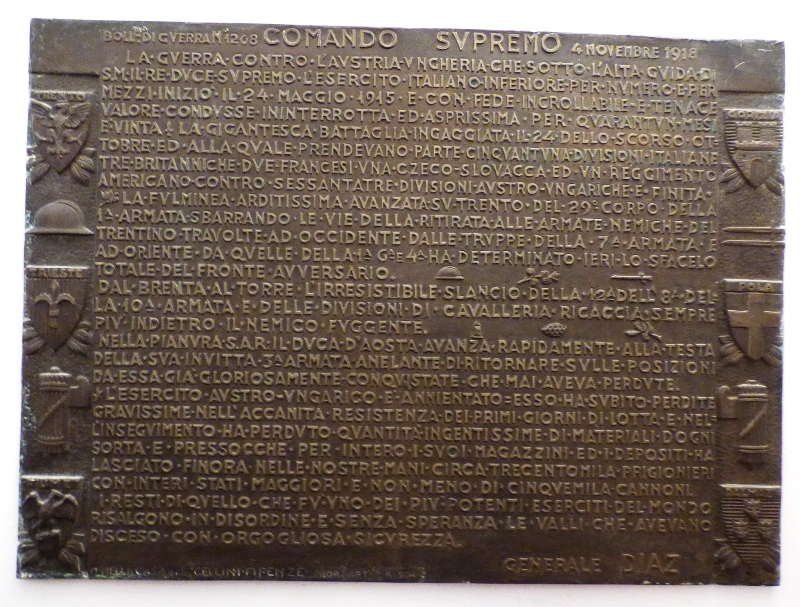 BOLL·DI GVERRA N 1268 COMANDO SVPREMO 4 NOVEMBRE 1918
LA·GVERRA·CONTRO·L'AVSTRIA·VNGHERIA·CHE·SOTTO·L'ALTA·GVIDA·DI
S·M·IL·RE·DVCE·SVPREMO·L'ESERCITO·ITALIANO·INFERIORE·PER·NVMERO·E·PER
MEZZI·INIZIO'·IL·24·MAGGIO·1915·E·CON·FEDE·INCROLLABILE·E·TENACE
VALORE·CONDVSSE·ININTERROTTA·ED·ASPRISSIMA·PER·QVARANTVN·MESI
E·VINTA·LA·GIGANTESCA·BATTAGLIA·INGAGGIATA·IL·24·DELLO·SCORSO·OT
TOBRE·ED·ALLA·QVALE·PRENDEVANO·PARTE·CINQVANTVNA·DIVISIONI·ITALIANE
TRE·BRITANNICHE·DVE·FRANCESI·VNA·CZECO·SLOVACCA·ED·VN·REGGIMENTO
AMERICANO·CONTRO·SESSANTATRE·DIVISIONI·AVSTRO·VNGARICHE·E·FINITA·
LA·FVLMINEA·ARDITISSIMA·AVANZATA·SV·TRENTO·DEL·29º·CORPO·DELLA
1ª·ARMATA·SBARRANDO·LE·VIE·DELLA·RITIRATA·ALLE·ARMATE·NEMICHE·DEL
TRENTINO·TRAVOLTE·AD·OCCIDENTE·DALLE·TRVPPE·DELLA·7ª·ARMATA·E
AD·ORIENTE·DA·QVELLE·DELLA·1ª·6ª·e·4ª·HA·DETERMINATO·IERI·LO·SFACELO
TOTALE·DEL·FRONTE·AVVERSARIO.
DAL·BRENTA·AL·TORRE·L'IRRESISTIBILE·SLANCIO·DELLA·12ª·DELL'8ª·DEL-
LA·10ª·ARMATA·E·DELLE·DIVISIONI·DI·CAVALLERIA·RICACCIA·SEMPRE
PIV'·INDIETRO·IL·NEMICO·FVGGENTE.
NELLA·PIANVRA·S·A·R·IL·DVCA·D'AOSTA·AVANZA·RAPIDAMENTE·ALLA·TESTA
DELLA·SVA·INVITTA·3ª·ARMATA·ANELANTE·DI·RITORNARE·SVLLE·POSIZIONI
DA·ESSA·GIA'·GLORIOSAMENTE·CONQVISTATE·CHE·MAI·AVEVA·PERDVTE.
L'ESERCITO·AVSTRO·VNGARICO·E·ANNIENTATO=ESSO·HA·SVBITO·PERDITE
GRAVISSIME·NELL'ACCANITA·RESISTENZA·DEI·PRIMI·GIORNI·DI·LOTTA·E·NEL-
L'INSEGVIMENTO·HA·PERDVTO·QVANTITÀ·INGENTISSIME·DI·MATERIALI·D'OGNI
SORTA·E·PRESSOCCHE·PER·INTERO·I·SVOI·MAGAZZINI·ED·I·DEPOSITI·HA
LASCIATO·FINORA·NELLE·NOSTRE·MANI·CIRCA·TRECENTO·MILA·PRIGIONIERI
CON·INTERI·STATI·MAGGIORI·E·NON·MENO·DI·CINQVEMILA·CANNONI.
I·RESTI·DI·QVELLO·CHE·FV·VNO·DEI·PIV·POTENTI·ESERCITI·DEL·MONDO
RISALGONO·IN·DISORDINE·E·SENZA·SPERANZA·LE·VALLI·CHE·AVEVANO
DISCESO·CON·ORGOGLIOSA·SICVREZZA.
GENERALE DIAZ
TRENTO
TRIESTE
POLA
CELLINI·FIRENZE